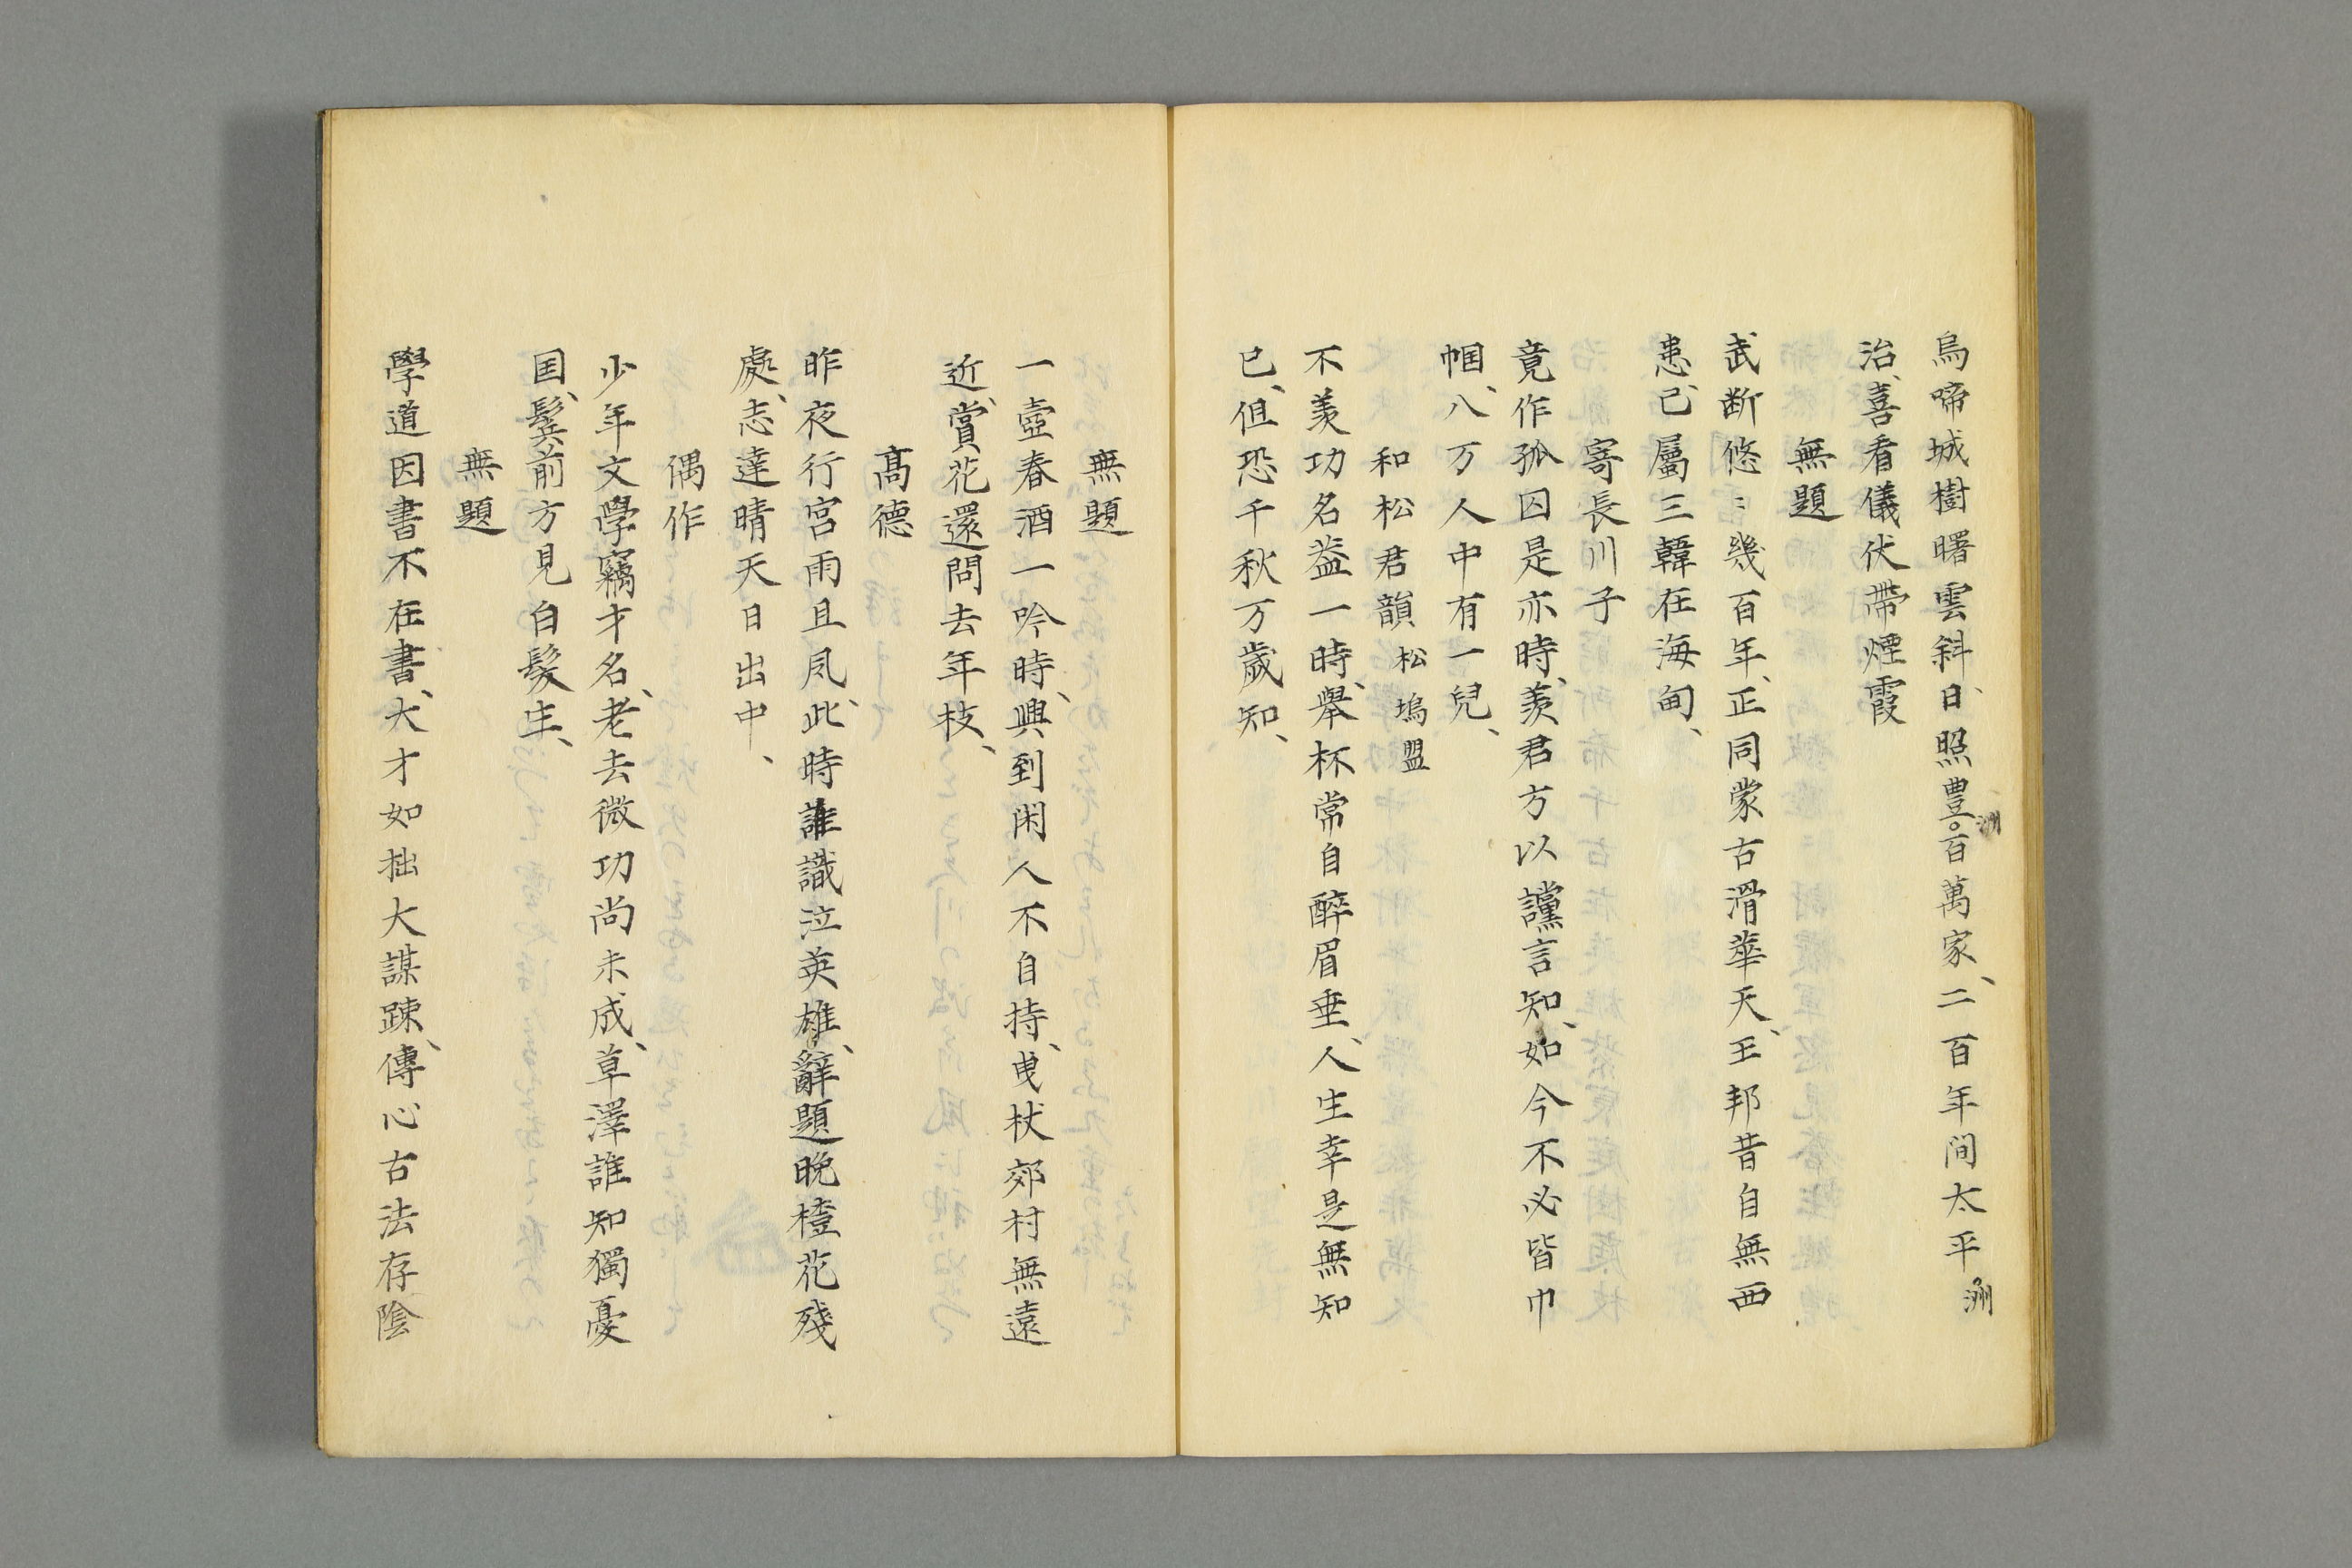 烏啼城樹曙雲斜、日照豊。百萬家、二百年间太平
洲
洲
治、喜看儀伏帶煙霞
無題
武断悠〻幾百年、正同蒙古滑華天、王邦昔自無西
患、已屬三韓在海甸、
寄長川子
竟作孤囚是亦時、羨君方以讜言知、如今不必皆巾
帼、八万人中有一兒、
和松君韻 松塢盟
不羨功名益一時、舉杯常自醉眉垂、人生幸是無知
已、但恐千秋万歲知、
無題
一壺春酒一吟時、興到閑人不自持、曳杖郊村無遠
近、賞花還問去年枝、
髙德
昨夜行宮雨且凨、此時誰識泣英雄、辭題晚櫻花殘
處、志達晴天日出中、
偶作
少年文學竊才名、老去微功尚未成、草澤誰知獨憂
国、鬂前方見白髪生、
無題
學道因書不在書、大才如拙大謀踈、傳心古法存陰